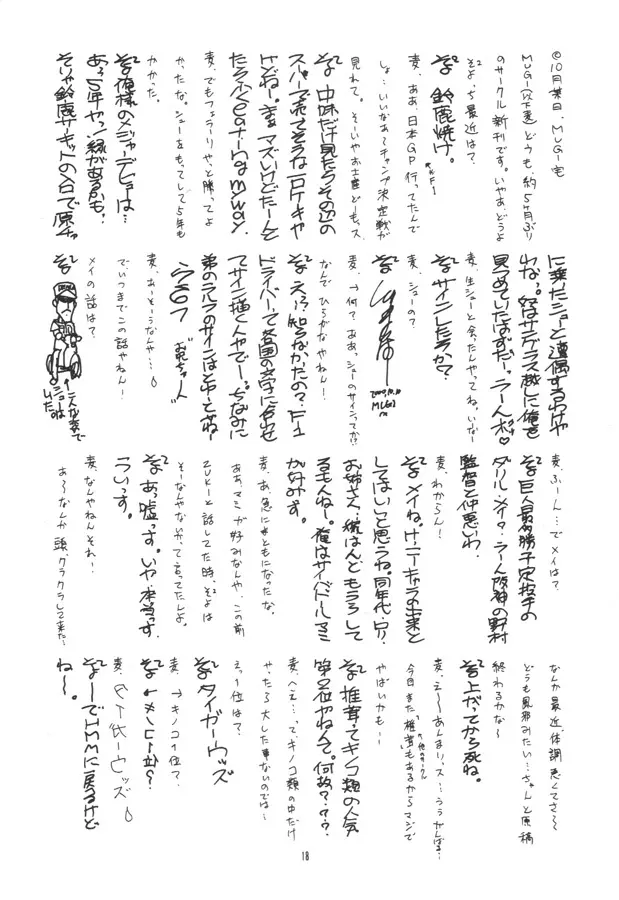 ©10月某日、MUGI宅
MUGI(以下麦)どうも、約5ヶ月ぶり
のサークル新刊です。いやぁ、どうよ
そよっち最近は？
そ2 鈴鹿焼け。
麦、ああ、日本GP行ってたんで
しょ…いいなぁ。チャンプ決定戦が
見れて。そういやお土産ども。ス
そ2 中味だけ見たらその辺の
スーパーで売ってそうな一口ケーキや
けどねー。まぁマズいけどたーんと
たらふくeating my way.
麦、でもフェラーリやっと勝ってよ
かったな。シューをもってして5年も
かかった。
そ2 俺様のメジャーデビューは…
あっ5年やン！縁があるかも。
そりゃ鈴鹿サーキットの入口で原チャ
に乗ったシューと遭遇するわけや
わな。奴はサングラス越しに俺を
見つめていたはずだー。うーん
麦、生シューと会ったんやってね。いいな〜
そ2 サインしたろか？
麦、シューの？
2000.10.10
MUGI
麦、→何？ああっ、シューのサインってか？！
なんでひらがなやねん！
そ2 え〜？知らなかったの？F1
ドライバーって各国の文字に合わせ
てサイン描くんやでー。ちなみに
弟のラルフのサインはこうやとねー
らるふ
麦、あーそうなんや…
で、いつまでこの話やねん！
メイの話は？
麦、ふーん…でメイは？
そ2 巨人最多勝予定投手の
ダリル・メイ？うーん阪神の野村
監督と仲悪いわ。
麦、わからん！
そ2 メイね。けニーキャラの出来と
してはいいと思うね。同年代・ロリ・
お姉さん・娘はんどもうろして
るもんねー。俺はサイドルマミ
が好みす。
麦、あ、急にまともになったな。
ああ、マミが好みなんや、この前
ZUKEと話してた時、そよは
そーなんやないかって言ってたんよ。
そ2 あっ嘘っす。いや・本当っす。
ういっす。
麦、なんやねんそれ！
あ〜なんか頭、グラグラして来た…
なんか最近、体調悪くてさ〜
どうも風邪みたい…ちゃんと原稿
終わるかな〜
そ2 書上がってから死ね。
麦、え〜あんまりっス…ううがんばる…
今日また"椎茸"もあるからマジで
やばいかも…
そ2 椎茸ってキノコ類の人気
第2位やねんて。何故？？？
麦、へえ…って、キノコ類の中だけ
やったら大した事ないのでは〜
えっ1位は？
そ2 タイガーウッズ
麦、→キノコ1位？
麦、
そ2 ーでTHMに戻るけど
ね〜。
18